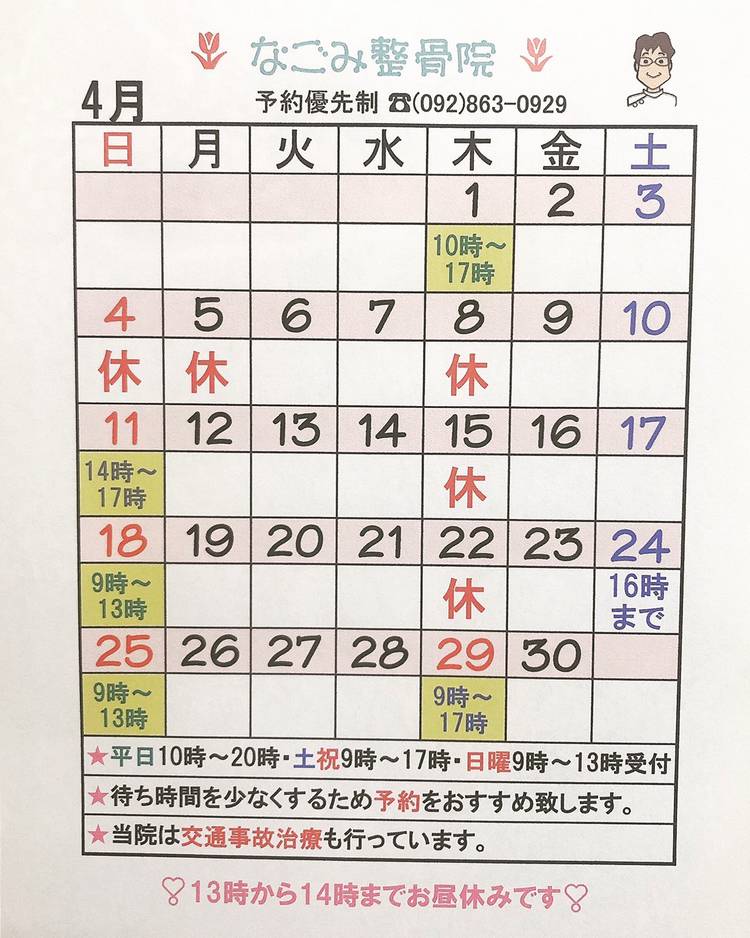 なごみ整骨院
4月 予約優先制 ☎(092)863-0929
日 月 火 水 木 金 土
1 2 3
10時～
17時
4 5 6 7 8 9 10
休 休 休
11 12 13 14 15 16 17
14時～
17時
休
18 19 20 21 22 23 24
9時～
13時
休
16時
まで
25 26 27 28 29 30
9時～
13時
9時～
17時
★平日10時～20時・土祝9時～17時・日曜9時～13時受付
★待ち時間を少なくするため予約をおすすめ致します。
★当院は交通事故治療も行っています。
13時から14時までお昼休みです